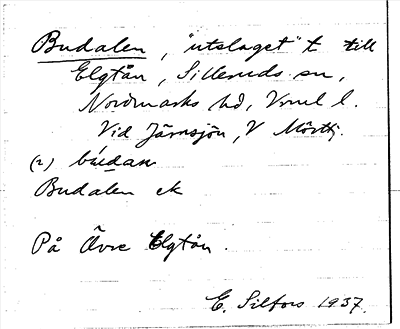 Budalen, "utslaget" t. till
Elgtån, Silleruds sn,
Nordmarks hd, Vrml l.
Vid Järnsjön, V Mörttj.
(2) bu̇dan
Budalen ek
På Övre Elgtån.
E. Silfors 1937.